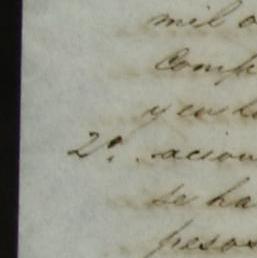 mil o
Comp
y en l
2ª. acion
se ha
pesos